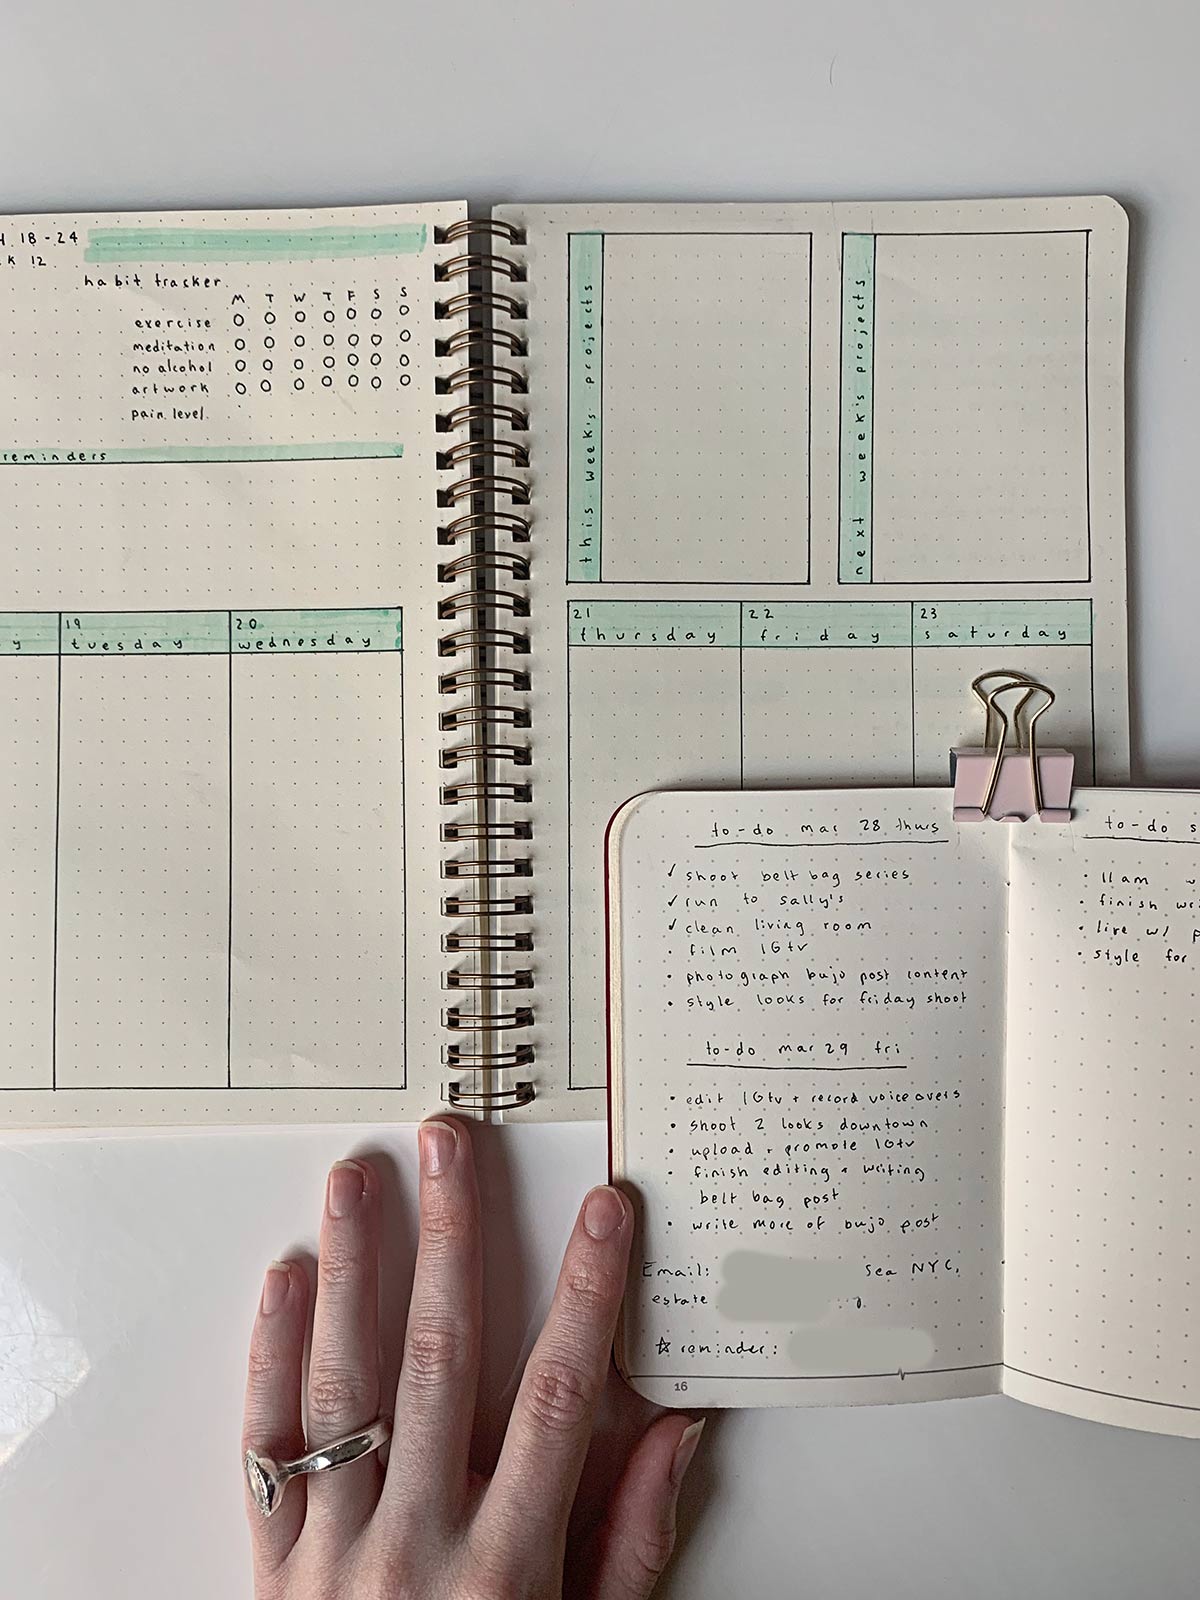 18-24
12
habit tracker
M T W T F S S
exercise
meditation
no alcohol
artwork
pain level
reminders
19
tuesday
20
wednesday
this week's projects
next week's projects
21
thursday
22
friday
23
saturday
to-do mar 28 thurs
✓ shoot belt bag series
✓ run to sally's
✓ clean living room
• film IGtv
• photograph bujo post content
• style looks for friday shoot
to-do mar 29 fri
• edit IGtv + record voiceovers
• shoot 2 looks downtown
• upload + promote IGtv
• finish editing + writing
belt bag post
• write more of bujo post
Email: Sea NYC,
estate
☆ reminder:
16
to-do s
• 11am w
• finish wri
• live w/ p
• style for